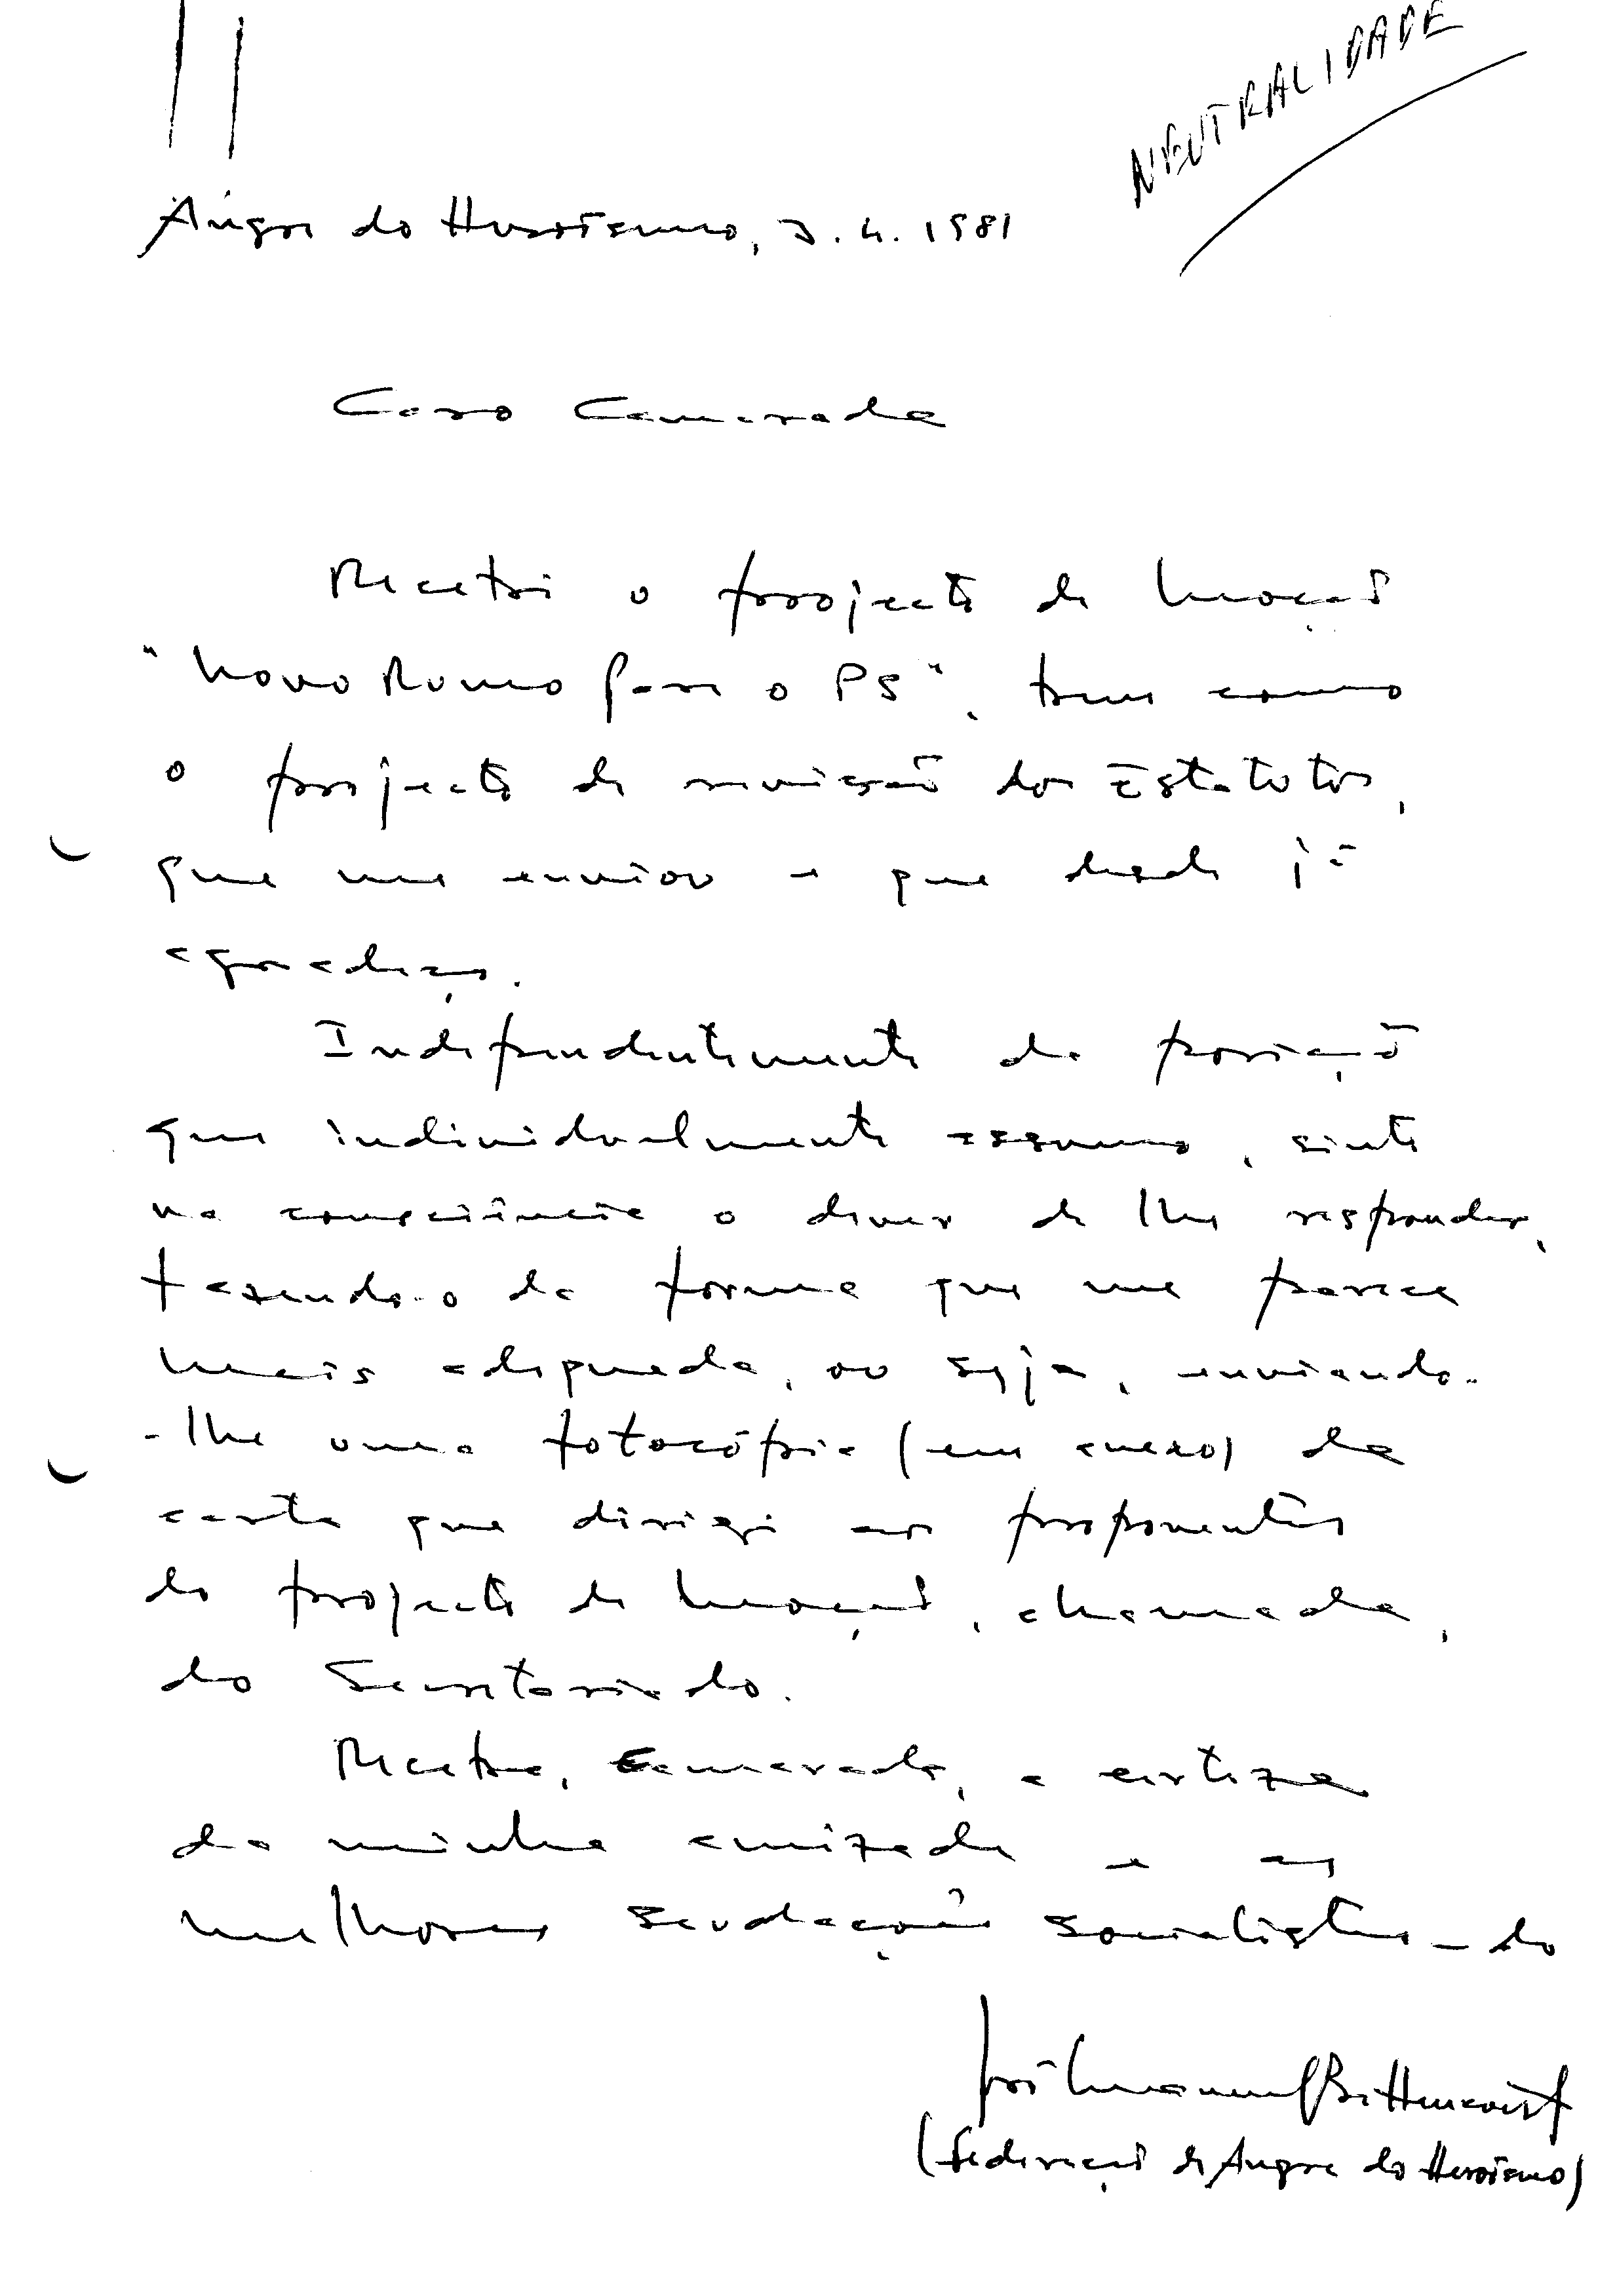 NEUTRALIDADE
Angra do Heroísmo, 3.4.1981
Caro Camarada
Recebi o projecto de Moção
"Novo Rumo para o PS", bem como
o projecto de revisão dos Estatutos,
que me enviou e que desde já
agradeço.
Independentemente da posição
que individualmente assumo, sinto
na consciência o dever de lhe responder,
fazendo-o da forma que me parece
mais adequada, ou seja, enviando-
-lhe uma fotocópia (em anexo) da
carta que dirigi aos proponentes
do projecto de Moção, chamada,
do Secretariado.
Receba, Camarada, a certeza
da minha amizade e as
melhores saudações socialistas - do
José Manuel Bettencourt
(Federação de Angra do Heroísmo)